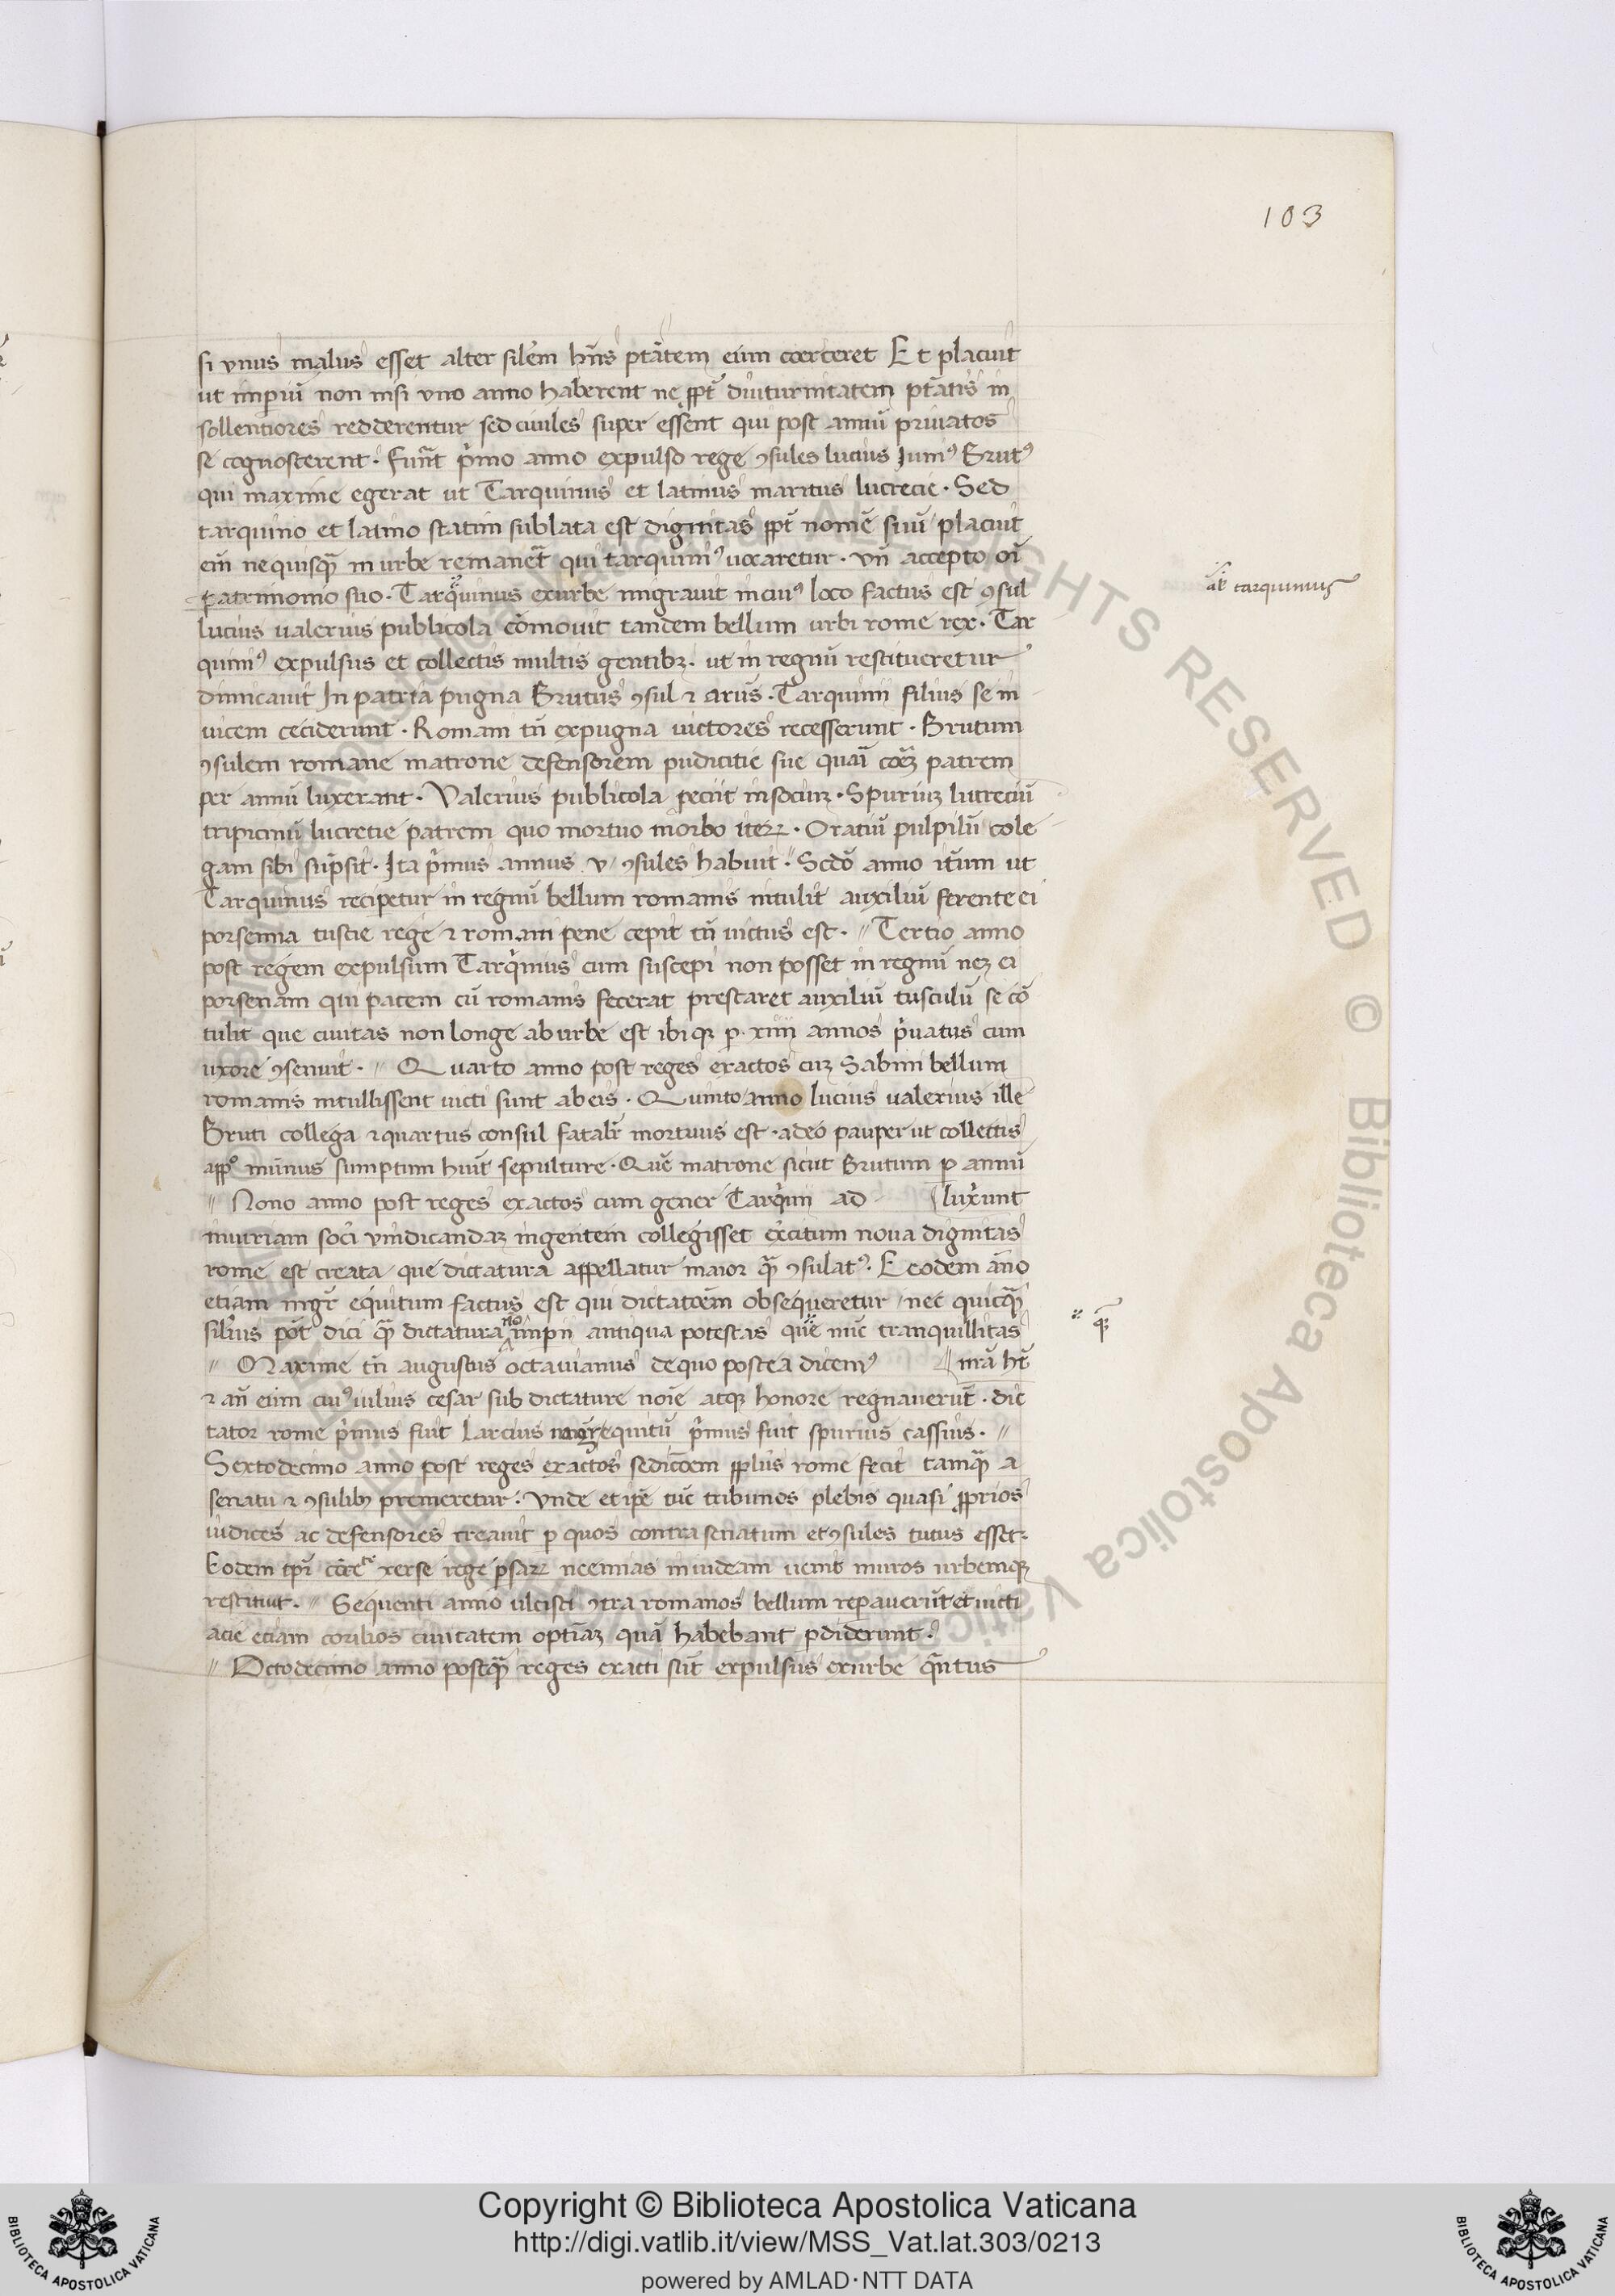 103
si vnus malus esset alter silẽm hñs ptãtem eum coerceret Et placuit
ut imperiũ non nisi vno anno haberent ne ꝓpt̃ diuturnitatem ptãtis in
sollentiores redderentur sed ciuiles super essent qui post annũ priuatos
se cognoscerent · Funt̃ p̃mo anno expulso rege ꝯsules lucius Iuniꝰ Brutꝰ
qui maxime egerat ut Tarquinus et latinus maritus lucrecie · Sed
tarquino et latino statim sublata est dignitas ꝓpt̃ nomẽ suũ placuit
em̃ ne quisq̃ in urbe remanet̃ qui tarquiniꝰ uocaretur · vñ accepto oĩ
patrimonio suo · Tarq̃uinus ex urbe migrauit in cuiꝰ loco factus est ꝯsul
al' tarquinius
lucius ualerius publicola cõmouit tandem bellum urbi rome rex · Tar
quiniꝰ expulsus et collectis multis gentibꝫ · ut in regnũ restitueretur
dimicauit In patria pugna Brutus ꝯsul ⁊ aruns · Tarquinii filius se in
uicem ceciderunt · Romani tñ ex pugna uictores recesserunt · Brutum
ꝯsulem romane matrone defensorem pudicitie sue quasi coꝫ patrem
per annũ luxerant · Valerius publicola fecit in sociuꝫ · Spuriuꝫ lucreciũ
tripicinũ lucretie patrem quo mortuo morbo iteꝝ · Oratiũ pulpilũ cole
gam sibi sũpsit · Ita p̃mus annus v ꝯsules habuit · Scdõ anno it̃um ut
Tarquinus recipetur in regnũ bellum romanis intulit auxiliũ ferente ei
porsenna tuscie rege ⁊ romam pene cepit tñ uictus est · // Tertio anno
post regem expulsum Tarq̃nius cum suscepi non posset in regnũ neꝫ ei
porsenam qui pacem cũ romanis fecerat prestaret auxiliũ tusculũ se cõ
tulit que ciuitas non longe ab urbe est ibi qꝫ p · xiiii annos p̃uatus cum
uxore ꝯsenuit · // Quarto anno post reges exactos cuꝫ Sabini bellum
romanis intullissent uicti sunt ab eis · Quinto anno lucius ualerius ille
Bruti collega ⁊ quartus consul fatalr̃ mortuus est · adeo pauper ut collectis
a ppo mũnus sumptum huit̃ sepulture · Quẽ matrone sicut Brutum p annũ
// Nono anno post reges exactos cum gener Tarq̃nii ad luxunt
iniuriam soci vindicandaꝫ ingentem collegisset ex̃citum noua dignitas
rome est creata que dictatura appellatur maior q̃ ꝯsulatꝰ · Eodem ãno
etiam mgr̃ equitum factus est qui dictatoẽm obsequeretur nec quicq̃
silius pot̃ dici q̃ dictatura imperii antiqua potestas quẽ nũc tranquillitas
qꝫ
// Maxime tñ augustus octauianus de quo postea dicemꝰ nr̃a ht̃
⁊ añ eum ciuꝰ iulius cesar sub dictature noĩe atqꝫ honore regnauerũt · dic
tator rome p̃mus fuit larcius mgr̃ equitũ p̃mus fuit spurius cassius · //
Sextodecimo anno post reges exactos sedicõem pplus rome fecit tamq̃ a
senatu ⁊ ꝯsulibꝫ premeretur · Vnde et ipẽ tũc tribunos plebis quasi ꝓprios
iudices ac defensores creauit p quos contra senatum et ꝯsules tutus esset ·
Eodem tpr̃ xerse rege psaꝝ neemias in iudeam uenit muros urbemqꝫ
restituit · // Sequenti anno ulcisci ꝯtra romanos bellum repauerũt et uicti
acie etiam corilios ciuitatem optĩaꝫ quã habebant pdiderunt ·
// Octodecimo anno postq̃ reges exacti sũt expulsus ex urbe q̃ntus
Copyright © Biblioteca Apostolica Vaticana
http://digi.vatlib.it/view/MSS_Vat.lat.303/0213
powered by AMLAD·NTT DATA